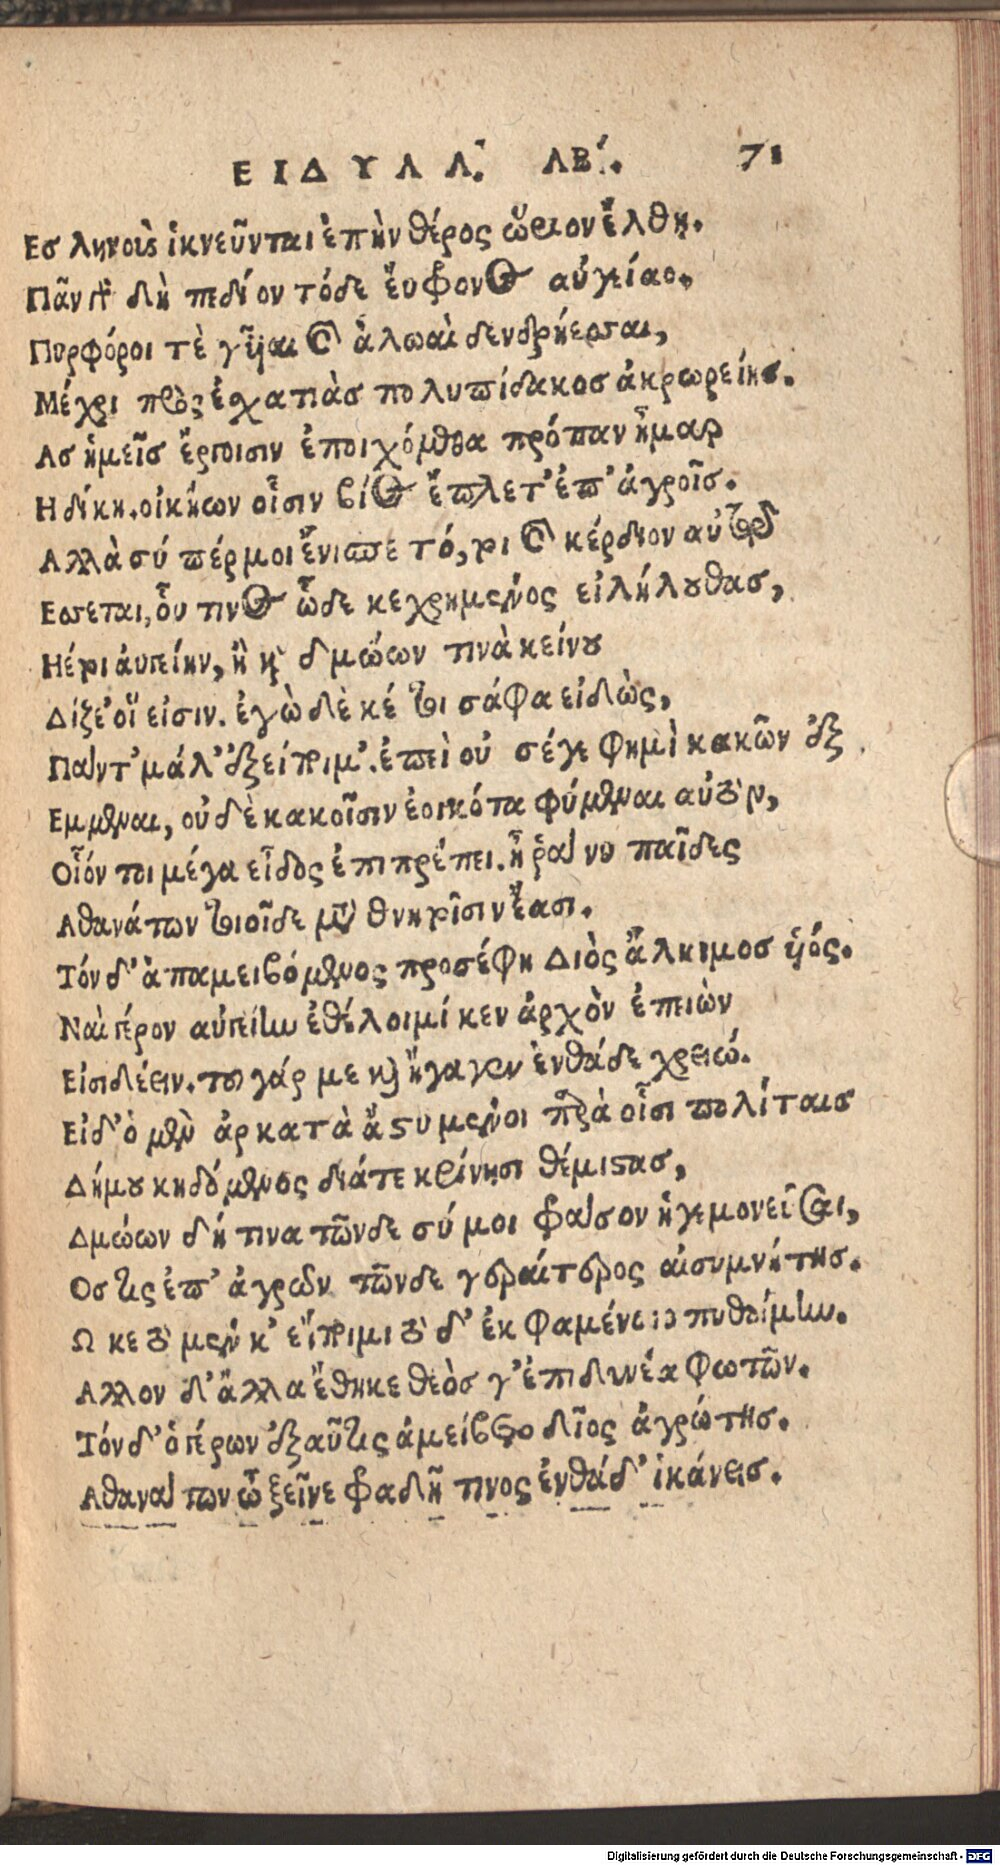 ΕΙΔΥΛΛ. ΛΒ'. 71
Ες ληνοὺς ἱκνεῦνται ἐπὴν θέρος ὥριον ἔλθῃ.
Πᾶν δὴ πεδίον τόδε ἔυφρονος αὐγείαο.
Πυρφόροι τὲ γύαι καὶ ἀλωαὶ δενδρήεσσαι,
Μέχρι πρὸς ἐσχατιὰς πολυπίδακος ἀκρωρείης.
Ας ἡμεῖς ἔργοισιν ἐποιχόμεθα πρόπαν ἦμαρ
Η δίκη. οἰκήων οἷσιν βίος ἔπλετ' ἐπ' ἀγροῖς.
Αλλὰ σύ πέρ μοι ἔνισπε τό, τοι καὶ κέρδιον αὐτῷ
Εσσεται, οὗ τινος ὧδε κεχρημένος εἰλήλουθας,
Ηέ τοι αὐγείην, ἢ καὶ δμώων τινὰ κείνου
Δίζε' οἵ εἰσιν. ἐγὼ δὲ κέ τοι σάφα εἰδὼς,
Πάντ' μάλ' ἐξείποιμ'. ἐπεὶ οὐ σέγε φημὶ κακῶν ἐξ
Εμμεναι, οὐδὲ κακοῖσιν ἐοικότα φύμεναι αὐτόν,
Οἷόν τοι μέγα εἶδος ἐπιπρέπει. ἦ ῥά νυ παῖδες
Αθανάτων τοιοῖδε μετὰ θνητοῖσιν ἔασι.
Τόν δ' ἀπαμειβόμενος προσέφη Διὸς ἄλκιμος υἱός.
Ναὶ γέρον αὐγείην ἐθέλοιμί κεν ἀρχὸν ἐπειὼν
Εἰσιδέειν. τοῦ γάρ με καὶ ἤγαγεν ἐνθάδε χρειώ.
Εἰ δ' ὁ μὲν ἂρ κατὰ ἄστυ μένοι παρὰ οἷσι πολίταις
Δήμου κηδόμενος διάτε κρίνησι θέμιστας,
Δμώων δή τινα τῶνδε σύ μοι φράσον ἡγεμονεῦσαι,
Οςτις ἐπ' ἀγρῶν τῶνδε γεραίτερος αἰσυμνήτης.
Ω κε τὸ μέν κ' εἴποιμι τὸ δ' ἐκ φαμένοιο πυθοίμην.
Αλλον δ' ἄλλα ἔθηκε θεὸς γ' ἐπιδευέα φωτῶν.
Τόν δ' ὁ γέρων ἐξαῦτις ἀμείβετο δῖος ἀγρώτης.
Αθανάτων ὦ ξεῖνε φραδῇ τινος ἐνθάδ' ἱκάνεις.
Digitalisierung gefördert durch die Deutsche Forschungsgemeinschaft - DFG